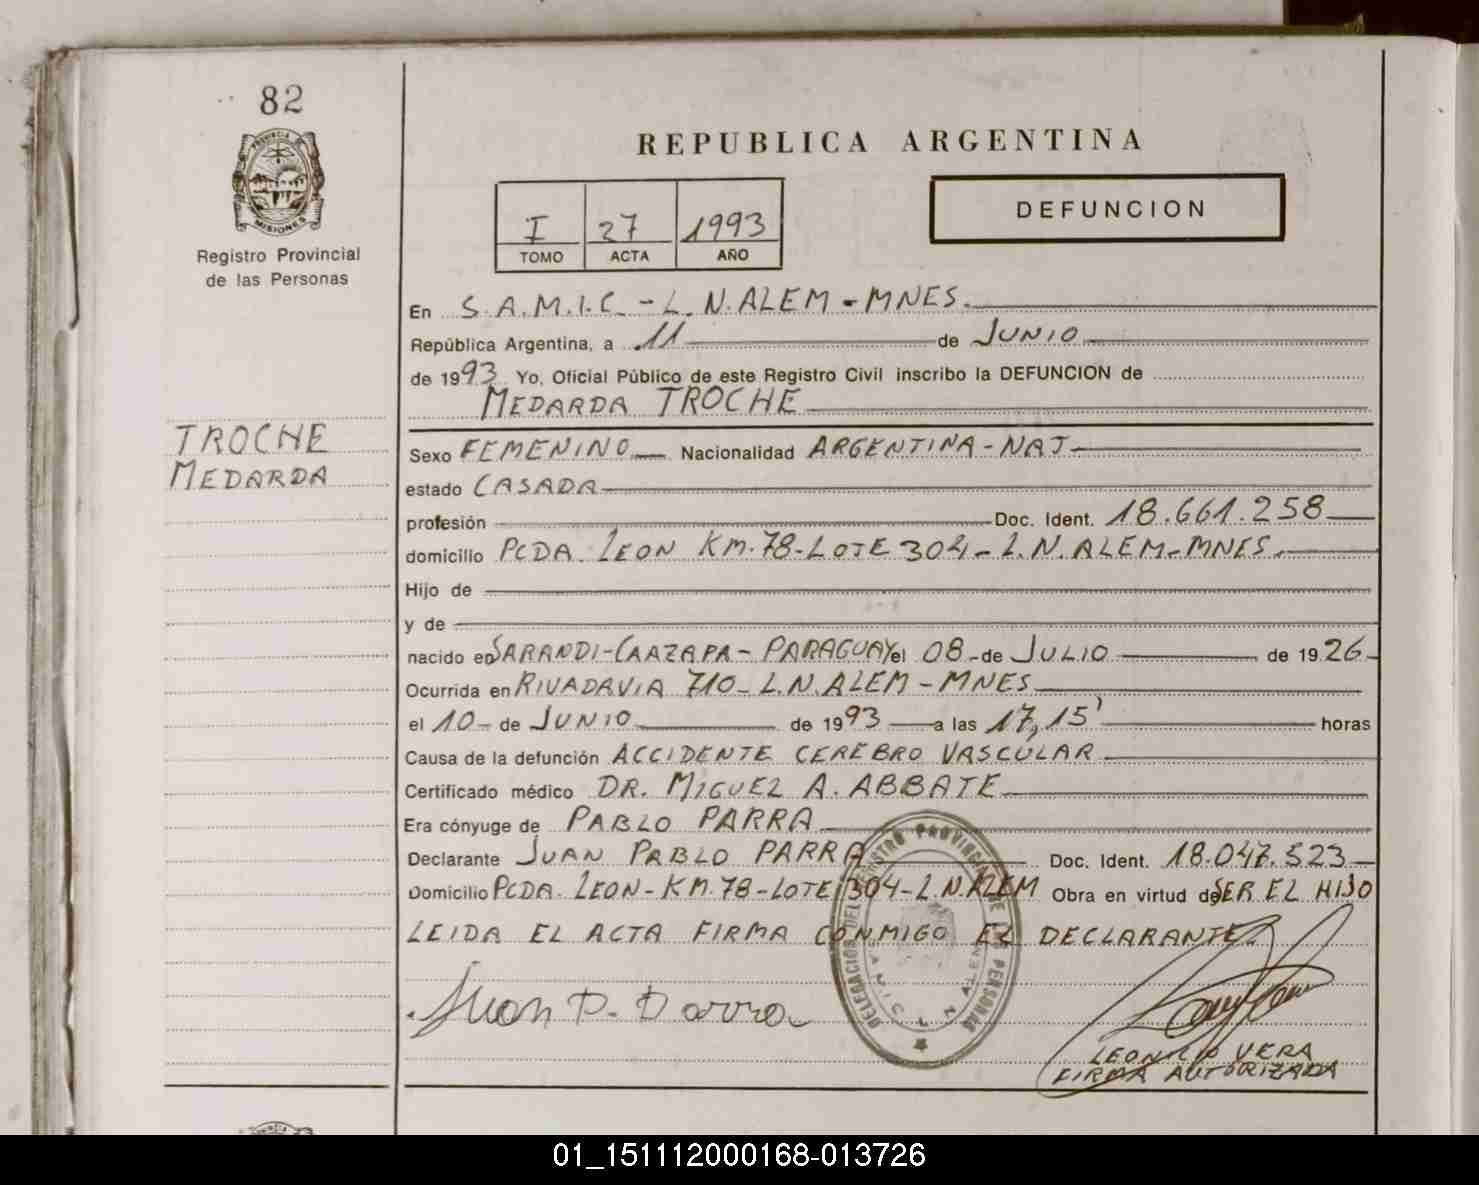 82
PROVINCIA DE
MISIONES
Registro Provincial
de las Personas
TROCHE
MEDARDA
REPUBLICA ARGENTINA
I 27 1993
TOMO ACTA AÑO
DEFUNCION
En S.A.M.I.C. - L.N.ALEM - MNES.
República Argentina, a 11 de JUNIO
de 1993 Yo, Oficial Público de este Registro Civil inscribo la DEFUNCION de
MEDARDA TROCHE
Sexo FEMENINO Nacionalidad ARGENTINA-NAT
estado CASADA
profesión Doc. Ident. 18.661.258
domicilio PCDA. LEON KM.78-LOTE 304-L.N.ALEM-MNES.
Hijo de
y de
nacido en SARANDI-CAAZAPA-PARAGUAY el 08-de JULIO de 1926
Ocurrida en RIVADAVIA 710-L.N.ALEM-MNES
el 10-de JUNIO de 1993 a las 17,15' horas
Causa de la defunción ACCIDENTE CEREBRO VASCULAR
Certificado médico DR. MIGUEL A. ABBATE
Era cónyuge de PABLO PARRA
Declarante JUAN PABLO PARRA Doc. Ident. 18.047.523
Domicilio PCDA. LEON-KM.78-LOTE 304-L.N.ALEM Obra en virtud de SER EL HIJO
LEIDA EL ACTA FIRMA CONMIGO EL DECLARANTE.
Juan P. Parra
DELEGACION DEL REGISTRO PROVINCIAL DE LAS PERSONAS
L N ALEM
LEONILIO VERA
FIRMA AUTORIZADA
01_151112000168-013726